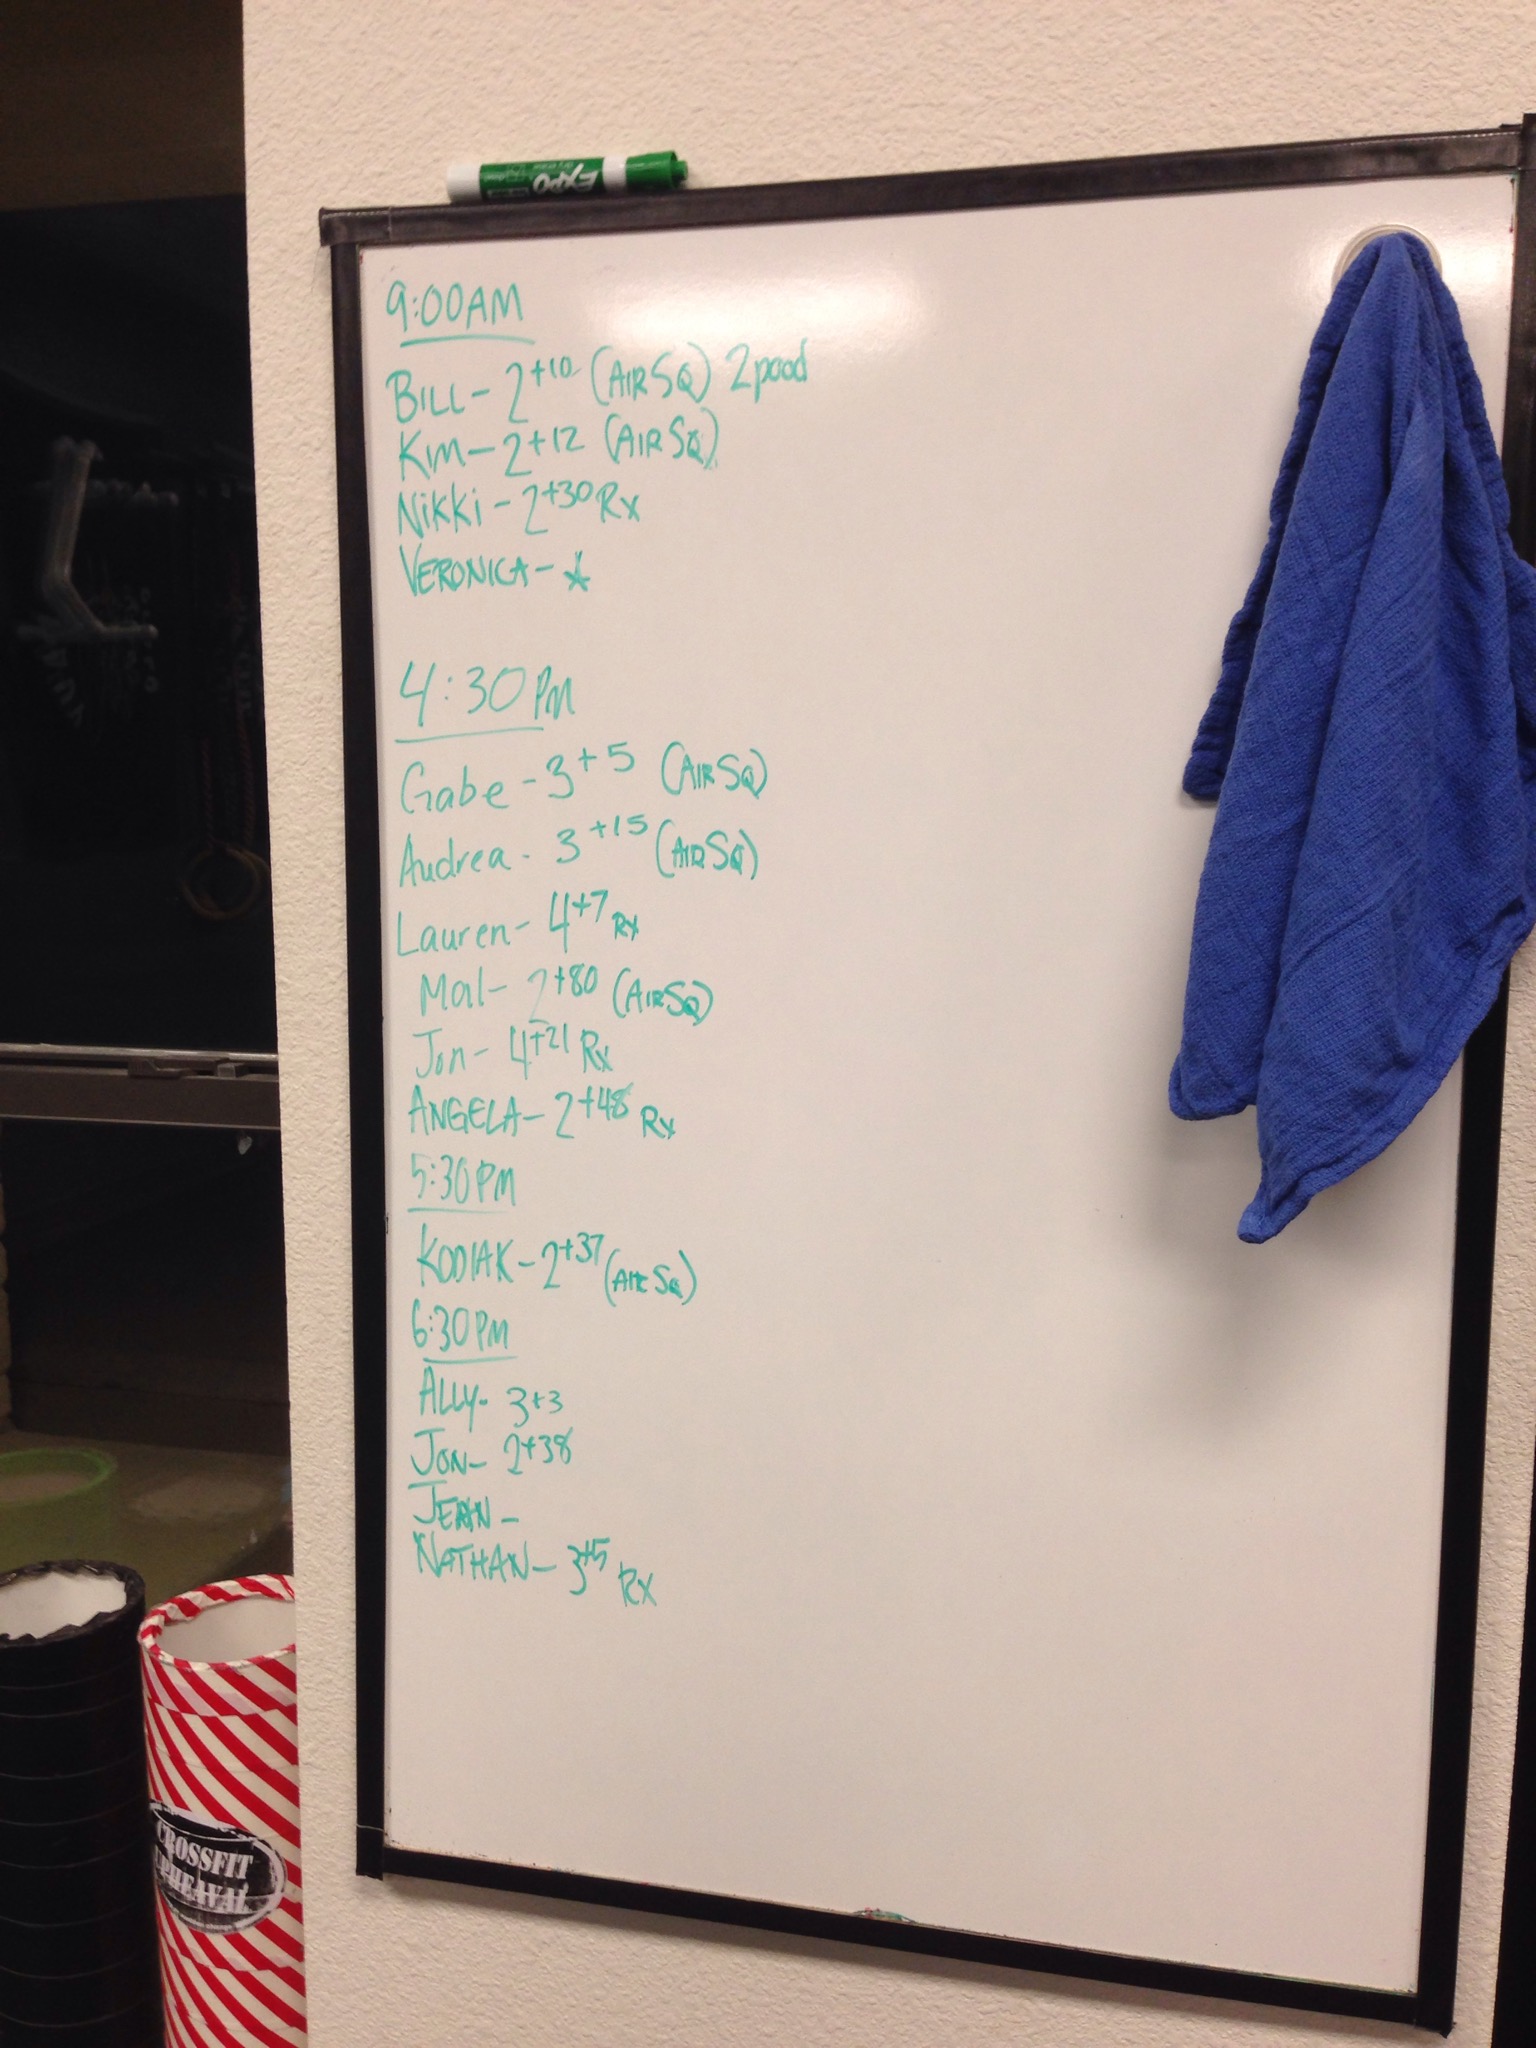 EXPO
9:00AM
BILL- 2+10 (AIR SQ) 2pood
Kim- 2+12 (AIR SQ)
Nikki - 2+30 Rx
VERONICA- ☆
4:30 PM
Gabe - 3+5 (AIR SQ)
Audrea - 3+15 (AIR SQ)
Lauren- 4+7 Rx
Mal- 2+80 (AIR SQ)
Jon- 4+21 Rx
ANGELA- 2+48 Rx
5:30 PM
KODIAK- 2+37 (AIR SQ)
6:30 PM
ALLY- 3+3
JON- 2+38
JEAN-
NATHAN- 3+5 Rx
CROSSFIT
UPHEAVAL